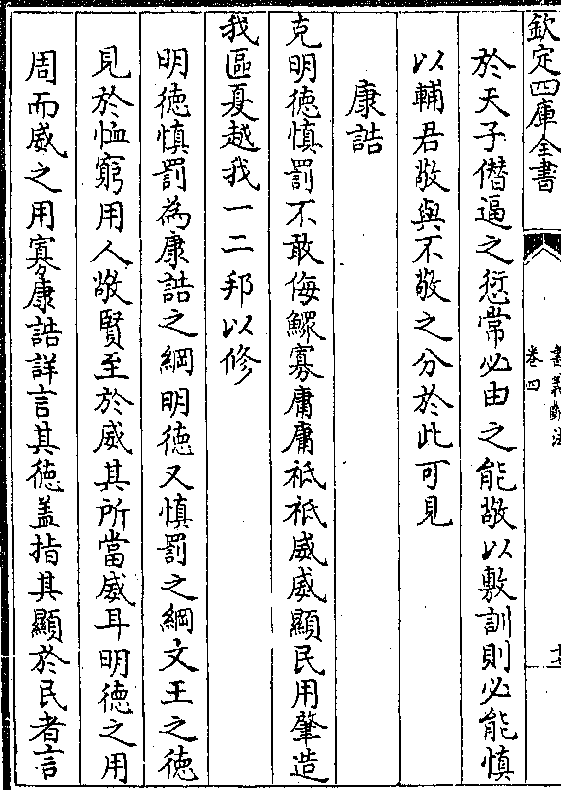 欽定四庫全書
書義斷法
卷四
於天子僭逼之愆常必由之能敬以敷訓則必能慎
以輔君敬與不敬之分於此可見
康誥
克明德慎罰不敢侮鰥寡庸庸祗祗威威顯民用肇造
我區夏越我一二邦以修
明德慎罰為康誥之綱明德又慎罰之綱文王之德
見於恤窮用人敬賢至於威其所當威耳明德之用
周而威之用寡康誥詳言其德盖指其顯於民者言